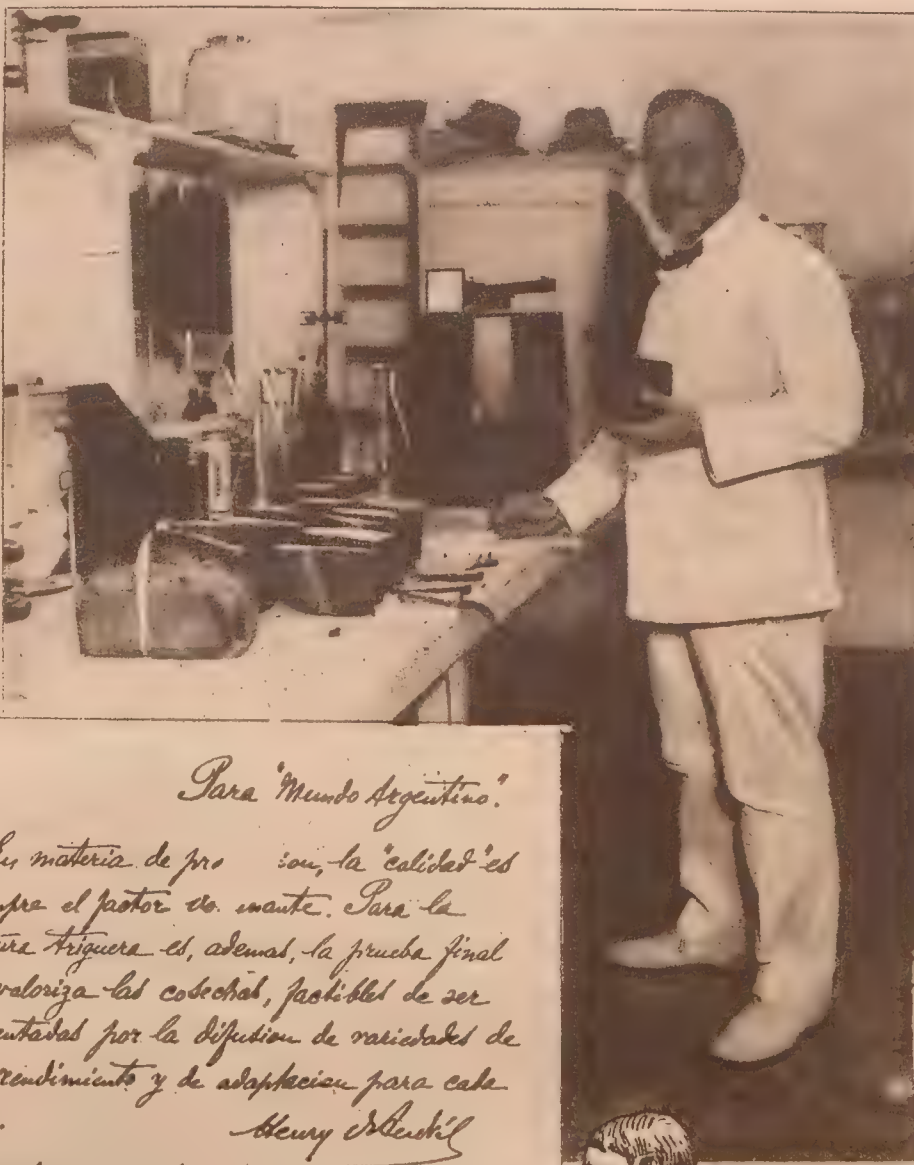 Para "Mundo Argentino".
En materia de pro ion, la "calidad" es
pre el factor do. inante. Para la
ura triguera es, ademas, la prueba final
valoriza las cosechas, factibles de ser
entadas por la difusion de variedades de
rendimiento y de adaptacion para cada
Henry